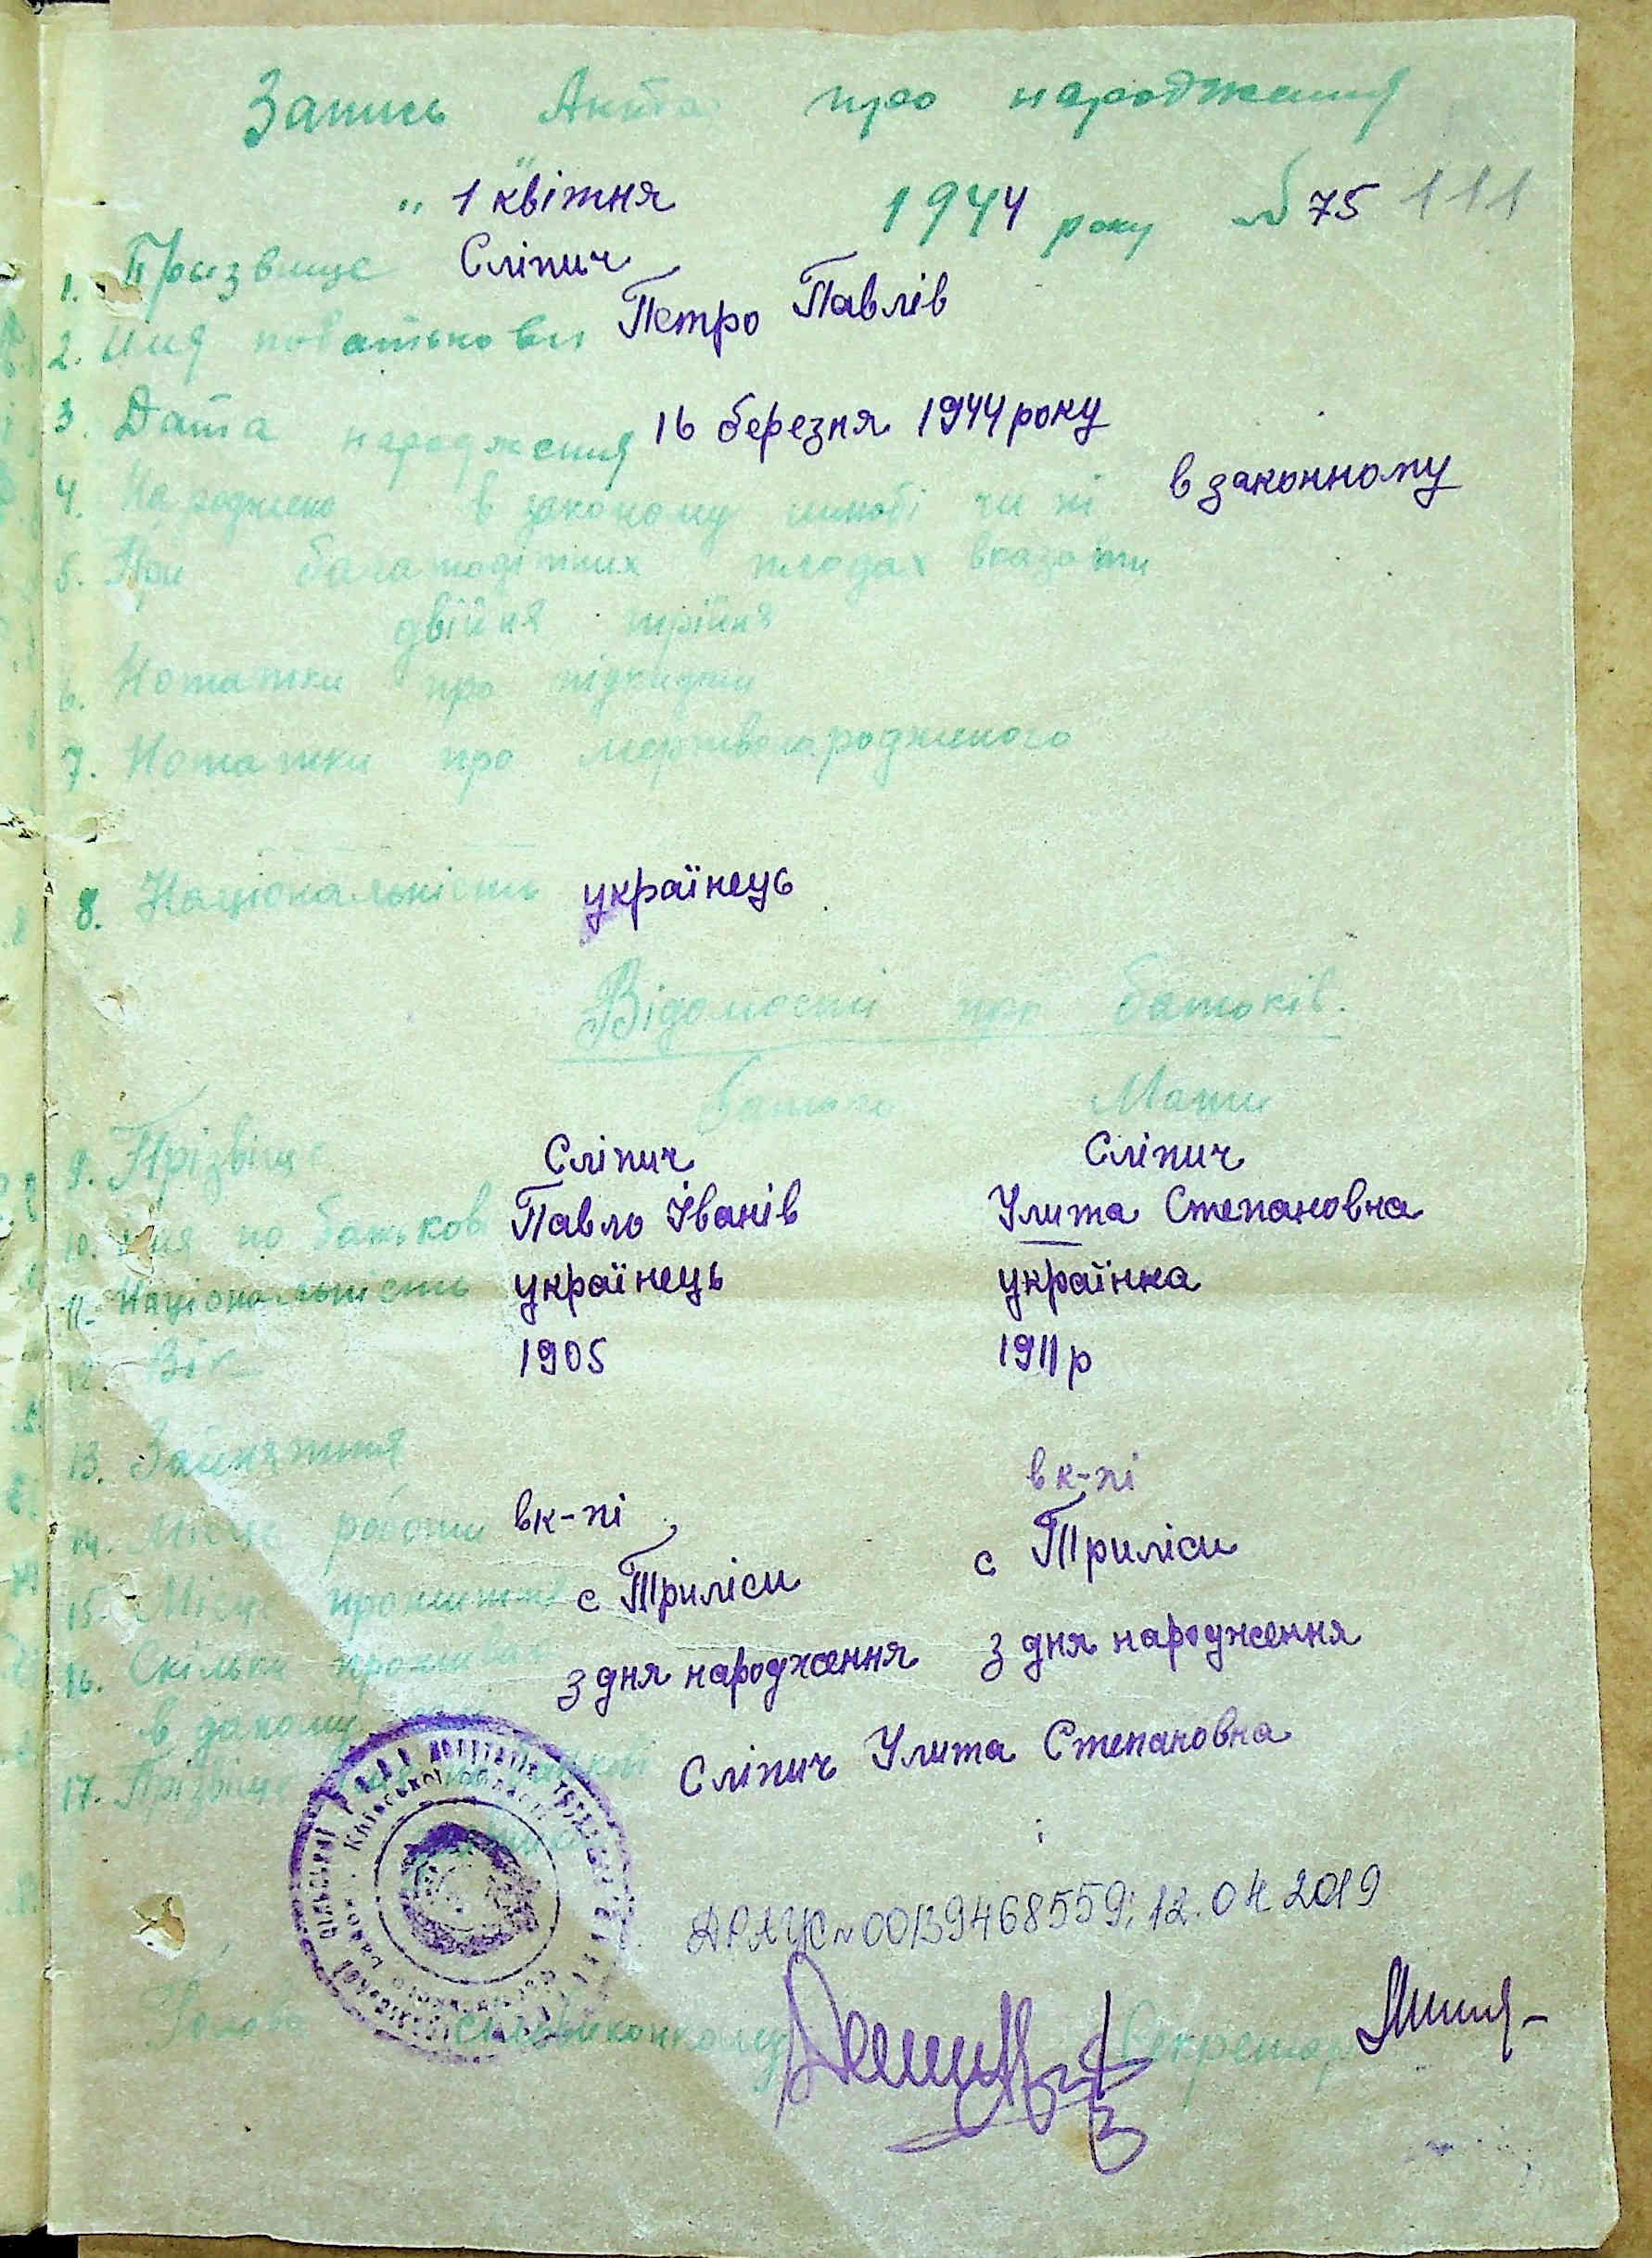 Запись Акта про народження
" 1 " квітня 1944 року № 75 111
1. Призвище Сліпич
2. Имя побатькови Петро Павлів
3. Дата народження 16 березня 1944 року
4. Народжено в законому шлюбі чи ні в законному
5. При багатодітних плодах вказати
двійня трійня
6. Нотатки про підкидки
7. Нотатки про мертвонародженого
8. Національність українець
Відомості про батьків.
Батько Мати
9. Прізвіще Сліпич Сліпич
10. Імя по батькові Павло Іванів Улита Степановна
11. Національність українець українка
12. Вік 1905 1911 р
13. Зайняття
14. Місце роботи вк-пі вк-пі
15. Місце прожиття с Триліси с Триліси
16. Скільки прожива з дня народження з дня народження
в даному
17. Прізвище Сліпич Улита Степановна
Київської області
ДРАЦС № 00139468559; 12.04 2019
Голова сільвиконкому Секретар